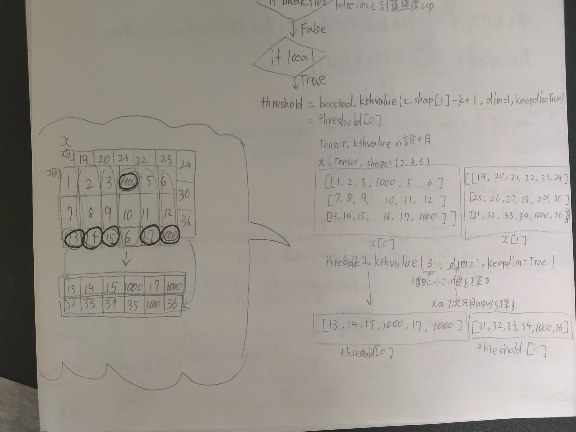 False
if local
True
threshold = boosted.kthvalue(x.shape[1]-k+1, dim=1, keepdim=True)
= threshold[0]
Tensor.kthvalue の説明
x : Tensor, shape=(2,3,6)
[[1, 2, 3, 1000, 5, 6]
[7, 8, 9, 10, 11, 12]
[13, 14, 15, 16, 17, 1000]]
x[0]
[[19, 20, 21, 22, 23, 24]
[25, 26, 27, 28, 29, 30]
[31, 32, 33, 34, 1000, 36]]
x[1]
kthvalue(3, dim=1, keepdim=True)
[13, 14, 15, 1000, 17, 1000]
threshold[0]
[31, 32, 33, 34, 1000, 36]
threshold[1]
x
19 20 21 22 23 24
1 2 3 1000 5 6 30
7 8 9 10 11 12 36
13 14 15 6
13 14 15 1000 17 1000
32 33 34 35 1000 36